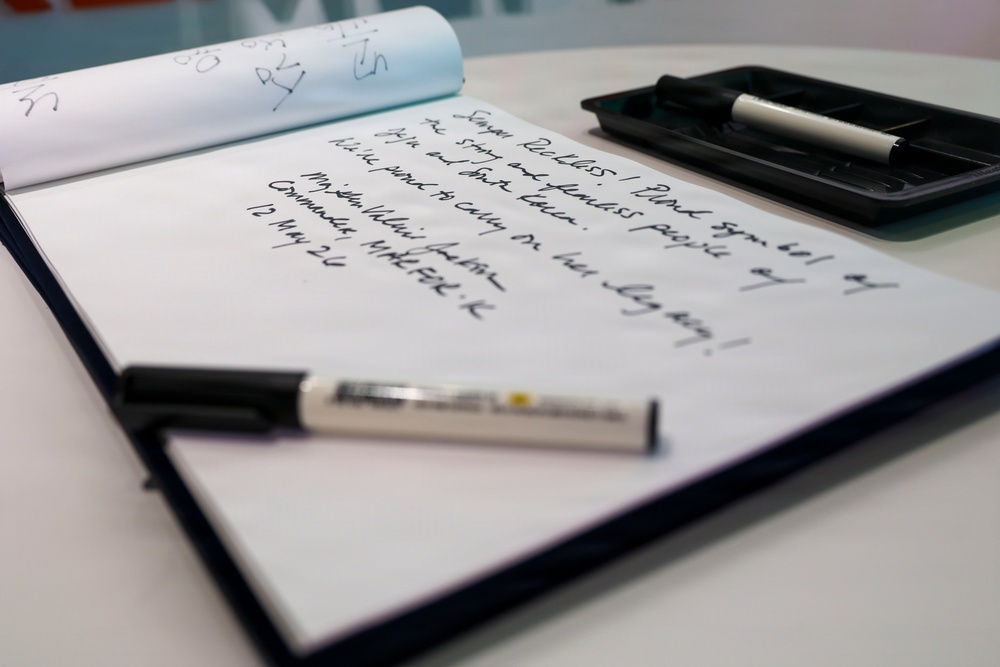 Semper Reckless! Proud symbol of
the strong and fearless people of
Jeju and South Korea.
We're proud to carry on her legacy!
MajGen Valerie Jackson
Commander, MARFOR-K
12 May 26